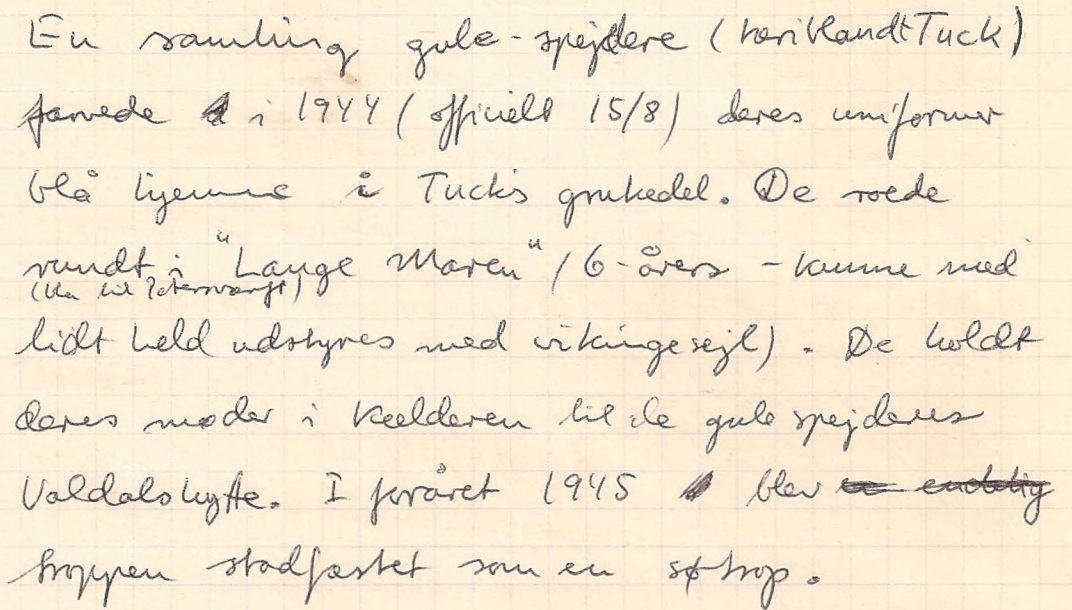 En samling gule-spejdere (heriblandt Tuck)
farvede i 1944 (officielt 15/8) deres uniformer
blå hjemme i Tuck's grukedel. De roede
rundt i "Lange Maren" (6-årers - kunne med
(bla. til
lidt held udstyres med vikingesejl). De holdt
deres møder i kælderen til de gule spejderes
Valdalshytte. I foråret 1945 blev endelig
troppen stadfæstet som en søtrop.